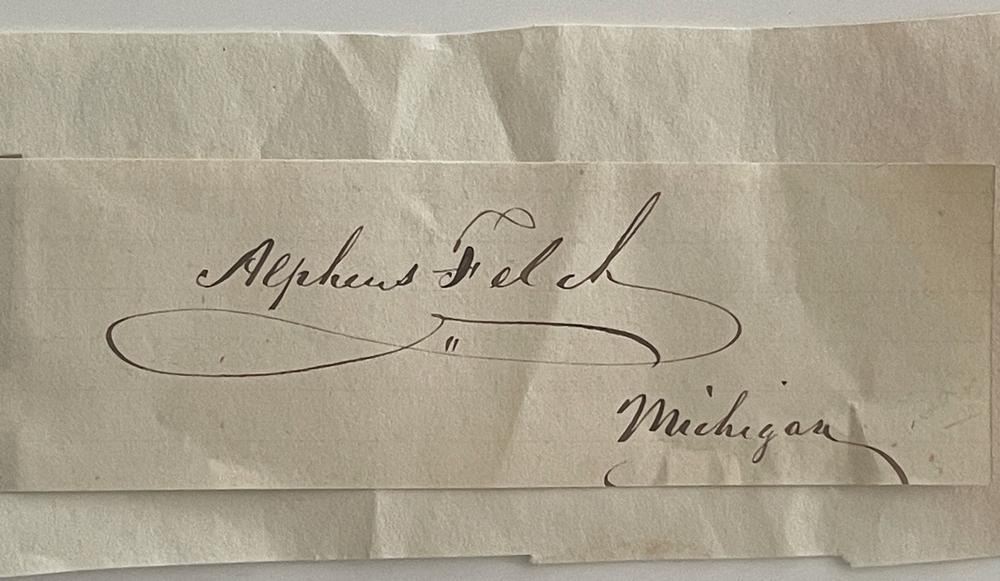 Alpheus Felch
Michigan